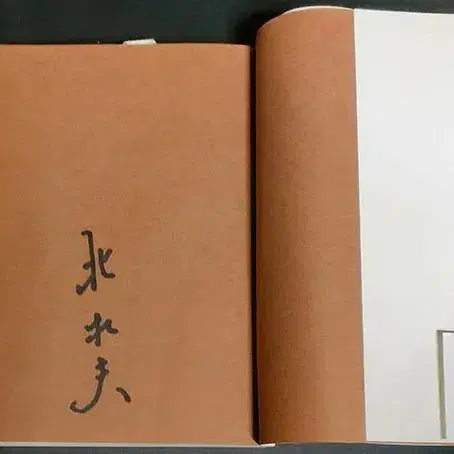 北杜夫